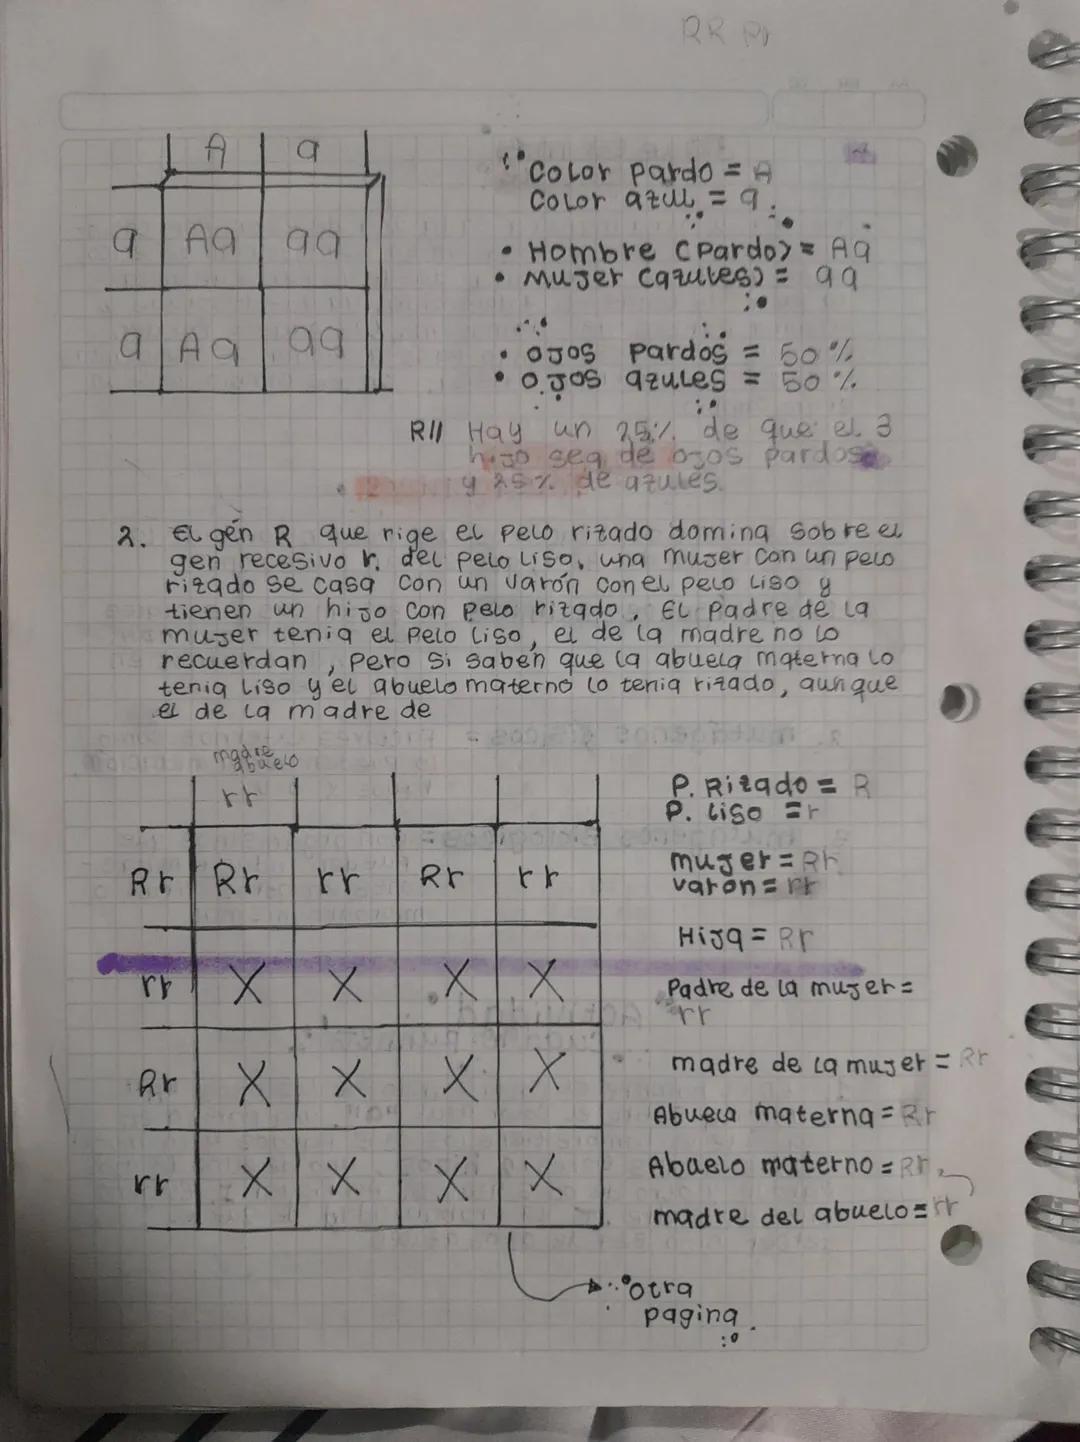 RR
A a
a Aa aa
a Aa aa
Color pardo = A
Color azul = a.
• Hombre (Pardo) = Aa
• Mujer (azules) = aa
• ojos pardos = 50%
• ojos azules = 50%
R// Hay un 25% de que el 3
hijo sea de ojos pardos
y 25% de azules.
2. El gén R que rige el pelo rizado domina sobre el
gen recesivo r. del pelo liso, una mujer con un pelo
rizado se casa con un varón con el pelo liso y
tienen un hijo con pelo rizado. El padre de la
mujer tenia el pelo liso, el de la madre no lo
recuerdan, pero si saben que la abuela materna lo
tenia liso y el abuelo materno lo tenia rizado, aunque
el de la madre de
madre
abuelo
rr
Rr Rr rr Rr rr
rr X X X X
Rr X X X X
rr X X X X
P. Rizado = R
P. liso = r
mujer = Rr
varon = rr
Hija = Rr
Padre de la mujer =
rr
madre de la mujer = Rr
Abuela materna = Rr
Abuelo materno = Rr
madre del abuelo = rr
otra
pagina.